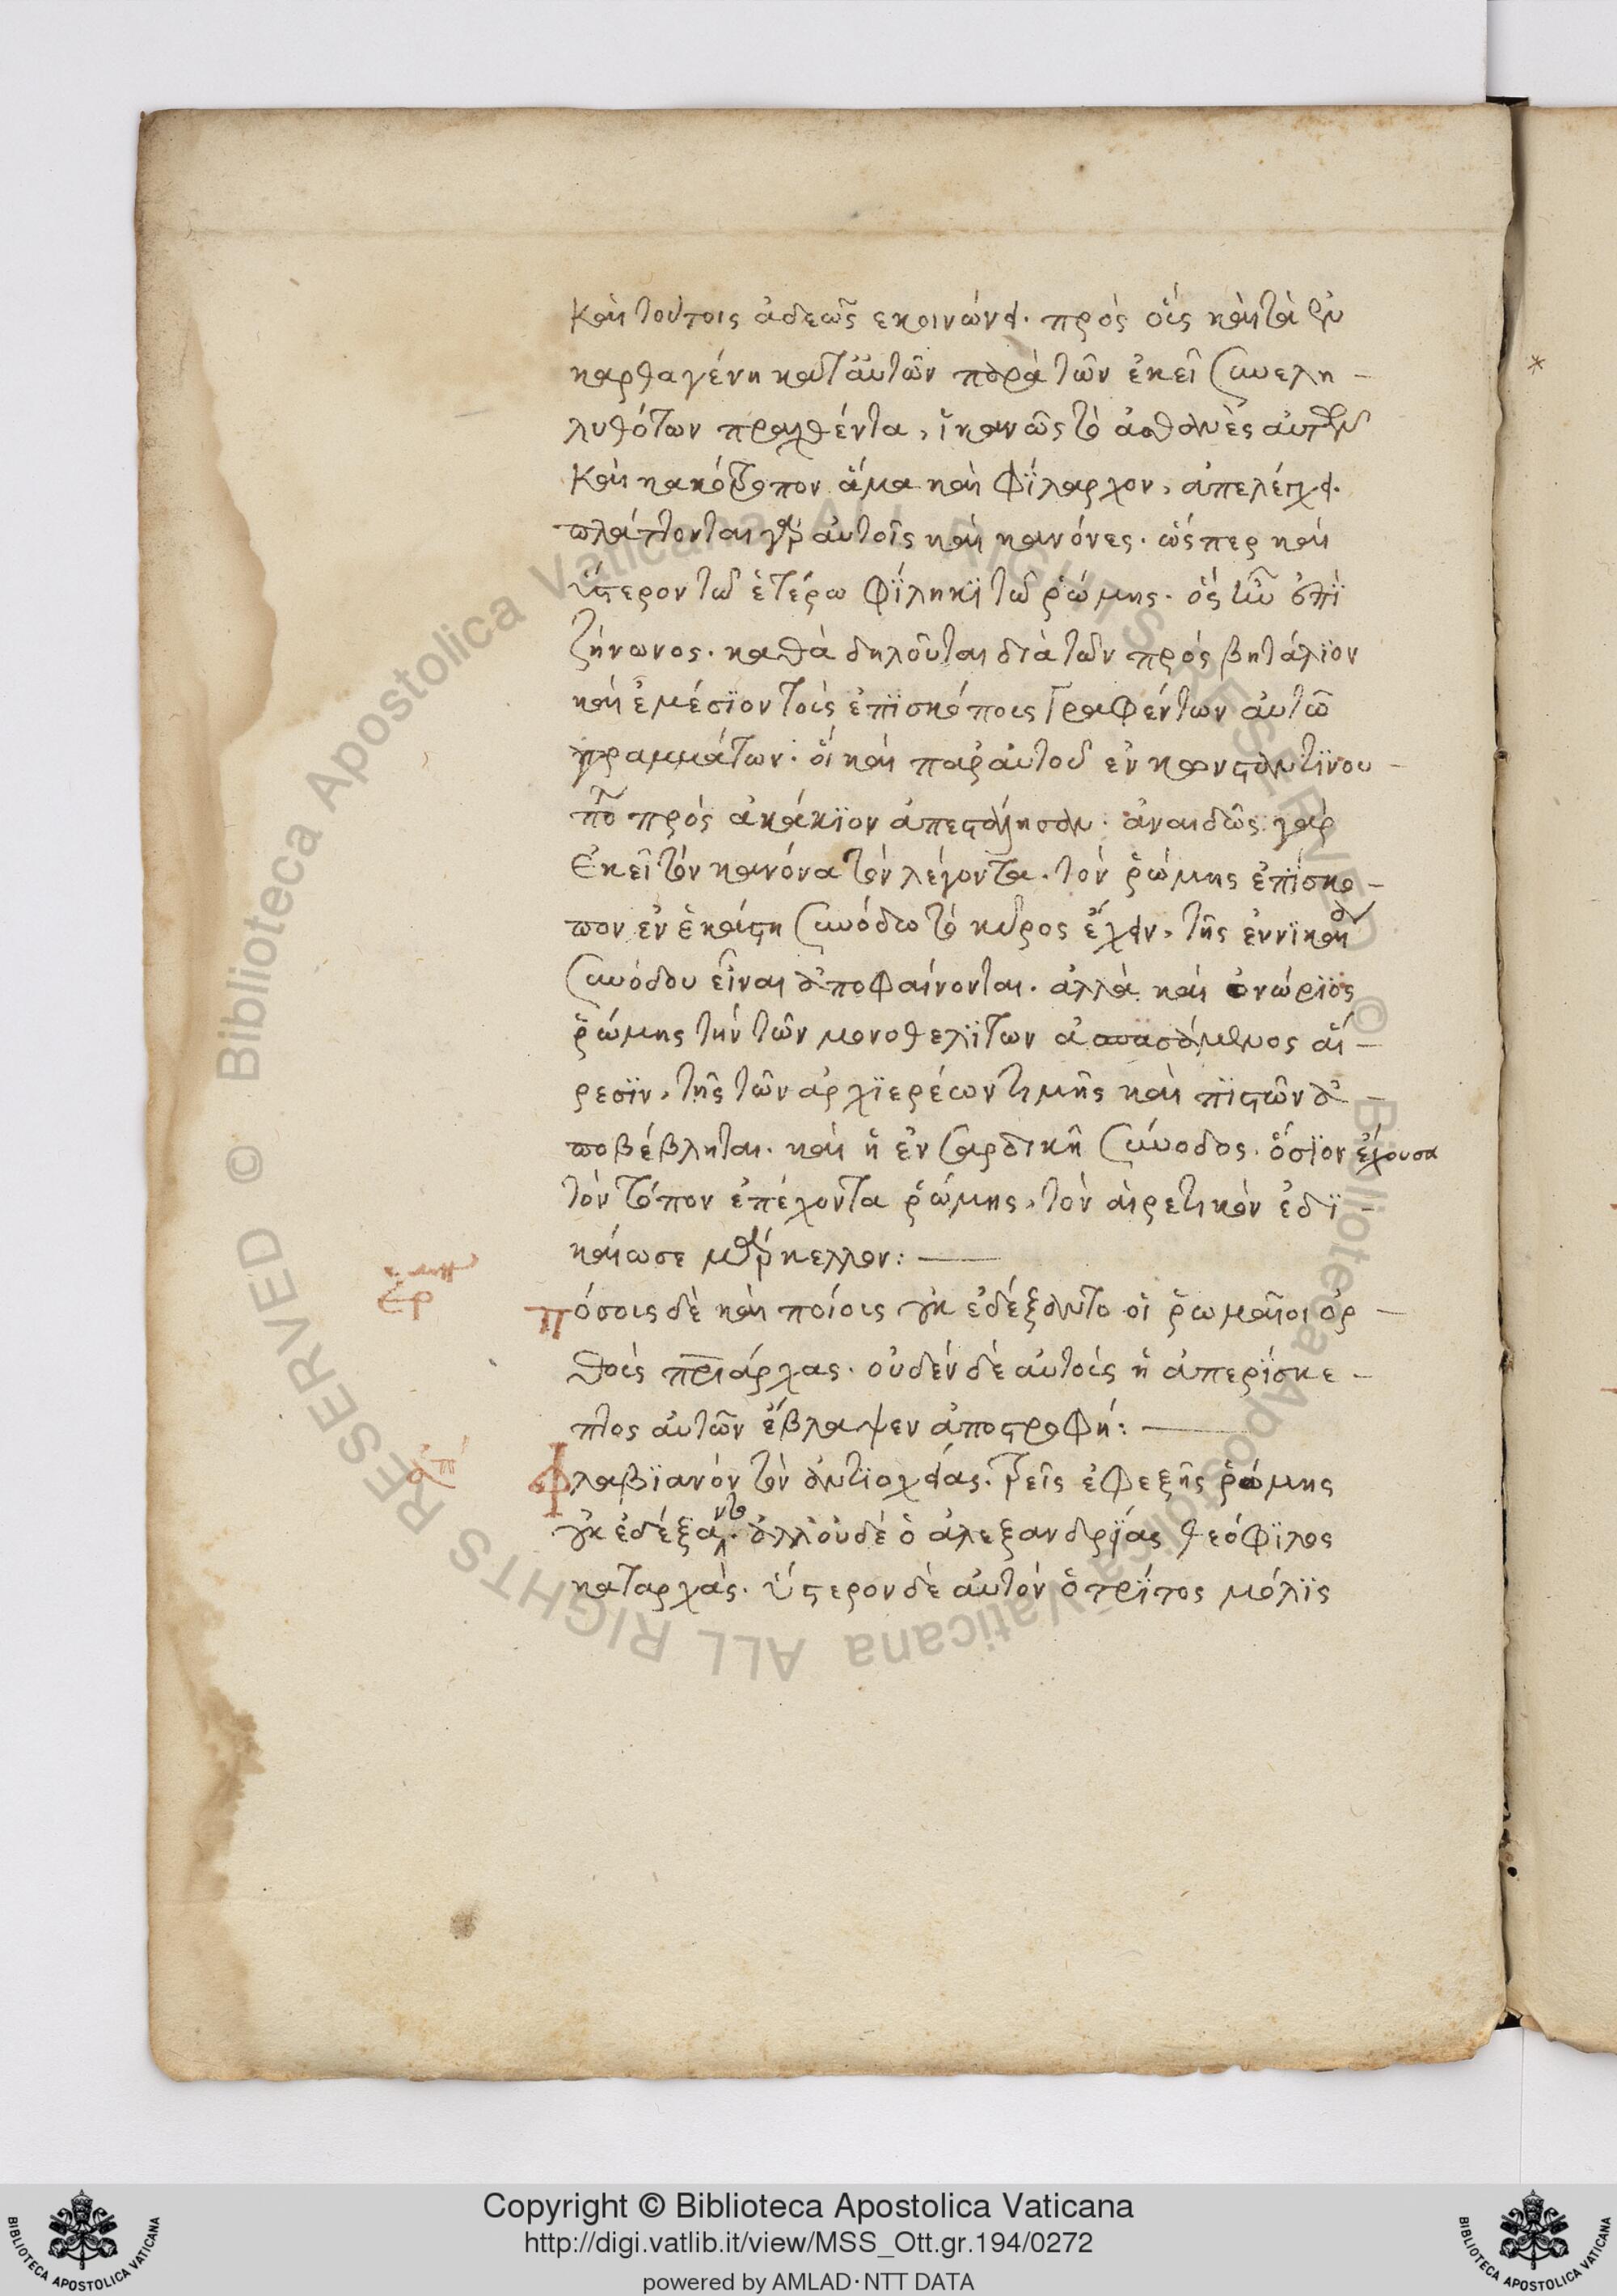 καὶ τούτοις ἀδεῶς εκοινώνει. πρὸς οἷς καὶ τὰ ἐν
καρθαγένη κατ αὐτῶν παρὰ τῶν ἐκεῖ συνελη-
λυθότων πραχθέντα, ἱκανῶς τὸ ἀσθενὲς αὐτῶν
καὶ κακότροπον ἅμα καὶ φίλαρχον, ἀπελέγχει.
πλάττονται γὰρ αὐτοῖς καὶ κανόνες. ὥσπερ καὶ
ὕστερον τῶ ἑτέρω φίληκι τῶ ῥώμης. ὃς ἦν ἐπὶ
ζήνωνος. καθὰ δηλοῦται διὰ τῶν πρὸς βητάλϊον
καὶ ἐμέσϊον τοὺς ἐπϊσκόπους γραφέντων αὐτῶ
γραμμάτων. οἳ καὶ παρ αὐτοῦ εν κωνσταντίνου-
πο πρὸς ἀκάκϊον ἀπεστάλησαν. ἀναιδῶς γὰρ
ἐκεῖ τὸν κανόνα τὸν λέγοντα. τὸν ῥώμης ἐπίσκο-
πον εν ἑκάστη συνόδω τὸ κῦρος ἔχειν, τῆς ἐν νϊκαία
συνόδου εἶναι ἀποφαίνονται. ἀλλὰ καὶ ὀνώρϊος
ῥώμης τὴν τῶν μονοθελϊτων ἀσπασάμενος αἵ-
ρεσϊν, τῆς τῶν ἀρχϊερέων τιμῆς καὶ πϊστῶν ἀ-
ποβέβληται. καὶ ἡ ἐν σαρδικῆ σύνοδος. ὅσϊον ἔχουσα
τὸν τόπον ἐπέχοντα ῥώμης, τὸν αἱρετικὸν ἐδϊ-
καίωσε μάρκελλον: —
πόσους δὲ καὶ ποίους οὐκ ἐδέξαντο οἱ ῥωμαῖοι ὀρ-
θοὺς πριάρχας. οὐδὲν δὲ αὐτοὺς ἡ ἀπερίσκε-
πτος αὐτῶν ἔβλαψεν ἀποστροφή: —
φλαβϊανὸν τὸν ἀντϊοχείας. τρεῖς ἐφεξῆς ῥώμης
οὐκ ἐδέξαντο. ἀλλ οὐδὲ ὁ ἀλεξανδρείας θεόφϊλος
καταρχὰς. ὕστερον δὲ αὐτὸν ὁ τρίτος μόλϊς